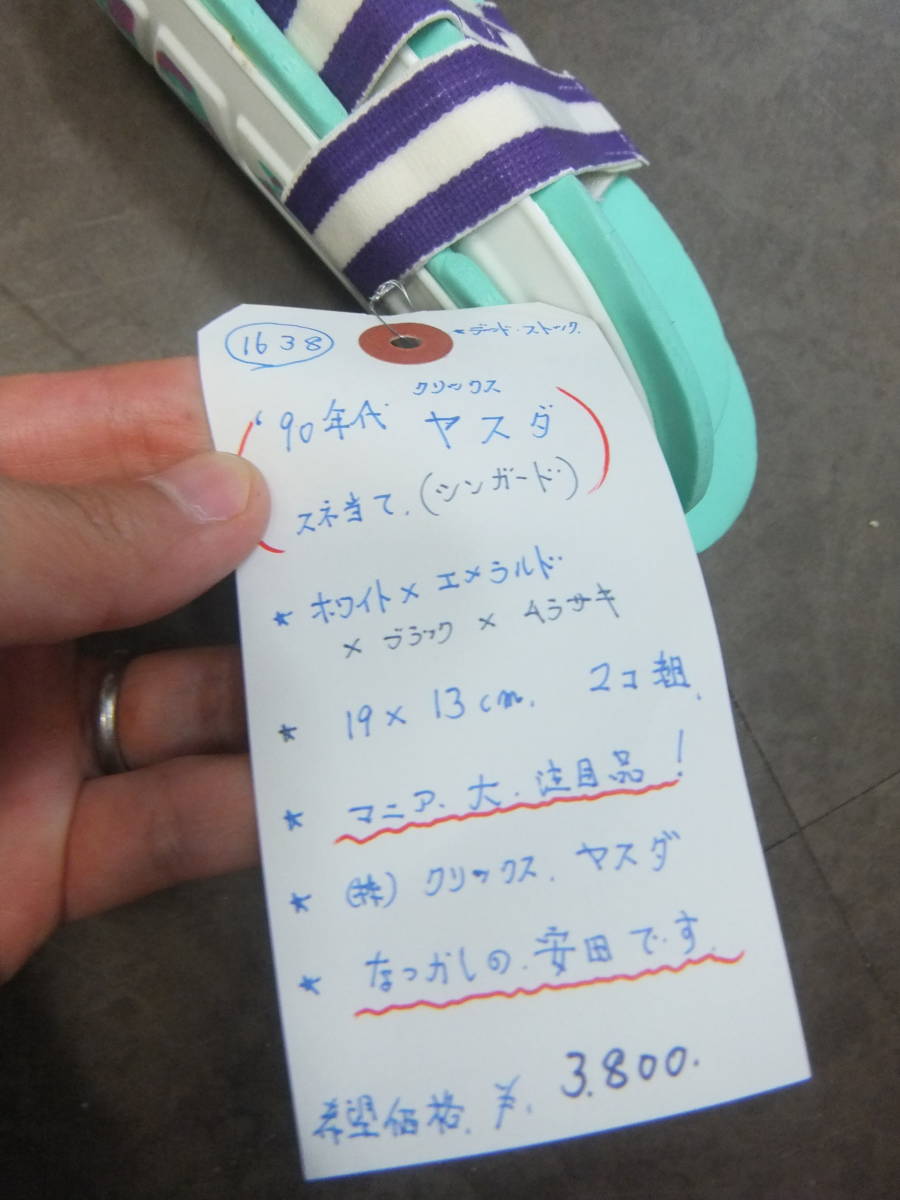 1638
←デッド・ストック.
クリックス
'90年代 ヤスダ
スネ当て.(シンガード)
★ ホワイト×エメラルド
×ブラック×ムラサキ
★ 19×13cm. 2コ組.
★ マニア.大.注目品!
★ (株)クリックス.ヤスダ
★ なつかしの.安田です.
希望価格.¥.3.800.